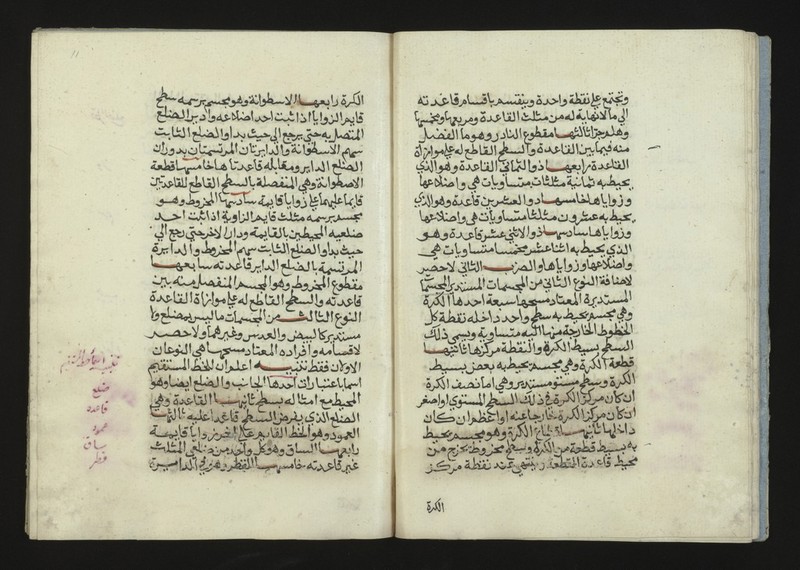 وتجتمع على نقطة واحدة وينقسم باقسام قاعدته
الى مالانهاية له من مثلث القاعدة ومربعها ومخمسها
وهلم جرا ثالثها مقطوع النادر وهو ما الفضل
منه فيما بين القاعدة والسطح القاطع له على موازاة
القاعدة رابعها ذو الثماني القاعدة وهو الذي
يحيط به ثمانية مثلثات متساويات هي واضلاعها
وزواياها خامسها ذو العشرين قاعدة وهو الذي
يحيط به عشرون مثلثا متساويات هي واضلاعها
وزواياها سادسها ذو الاثني عشر قاعدة وهو
الذي يحيط به اثنا عشر مخمسا متساويات هي
واضلاعها وزواياها والضرب الثاني لاحصر
لاصنافه النوع الثاني من المجسمات المستدير المجسمات
المستديرة المعتاد مسحها سبعة احدها الكرة
وهي مجسم يحيط به سطح واحد داخله نقطة كل
الخطوط الخارجة منها اليه متساوية ويسمى ذلك
السطح بسيط الكرة والنقطة مركزها ثانيها
قطعة الكرة وهي مجسم يحيط به بعض بسيط
الكرة وسطح مستو مستدير وهي اما نصف الكرة
ان كان مركز الكرة في ذلك السطح المستوي او اصغر
ان كان مركز الكرة خارجا عنه او اعظم ان كان
داخلها ثالثها الكرة وهو مجسم يحيط
به بسيط قطعة من الكرة وسطح مخروط يخرج من
محيط قاعدة القطعة وينتهي عند نقطة مركز
الكرة
١١
الكرة رابعها الاسطوانة وهو مجسم يرسمه سطح
قايم الزوايا اذا ثبت احد اضلاعه وادير الضلع
المتصل به حتى يرجع الى حيث بدا والضلع الثابت
سهم الاسطوانة والدايرتان المرتسمتان بدوران
الضلع الداير ومقابله قاعدتاها خامسها قطعة
الاصطوانة وهي المنفصلة بالسطح القاطع للقاعدتين
قايما عليهما على زوايا قايمة سادسها المخروط وهو
مجسم يرسمه مثلث قايم الزاوية اذا ثبت احد
ضلعيه المحيطين بالقايمة ودار الاخر حتى رجع الى
حيث بدا والضلع الثابت سهم المخروط والدايرة
المرتسمة بالضلع الداير قاعدته سابعها
مقطوع المخروط وهو المجسم المنفصل منه بين
قاعدته والسطح القاطع له على موازاة القاعدة
النوع الثالث من المجسمات ما ليس بمضلع ولا
مستدير كالبيض والعدس وغيرهما ولا حصر
لاقسامه وافراده المعتاد مسحها هي النوعان
الاولان فقط تنبيه اعلم ان للخط المستقيم
اسما باعتبارات احدها الجانب والضلع ايضا وهو
المحيط مع امثاله بسطح ثانيها القاعدة وهي
الضلع الذي يفرض السطح قاعدا عليه ثالثها
العمود وهو الخط القايم على اخر زوايا قايمة
رابعها الساق وهو كل واحد من ضلعي المثلث
غير قاعدته خامسها القطر وهو في الداير
ضلع
قاعدة
عمود
ساق
قطر